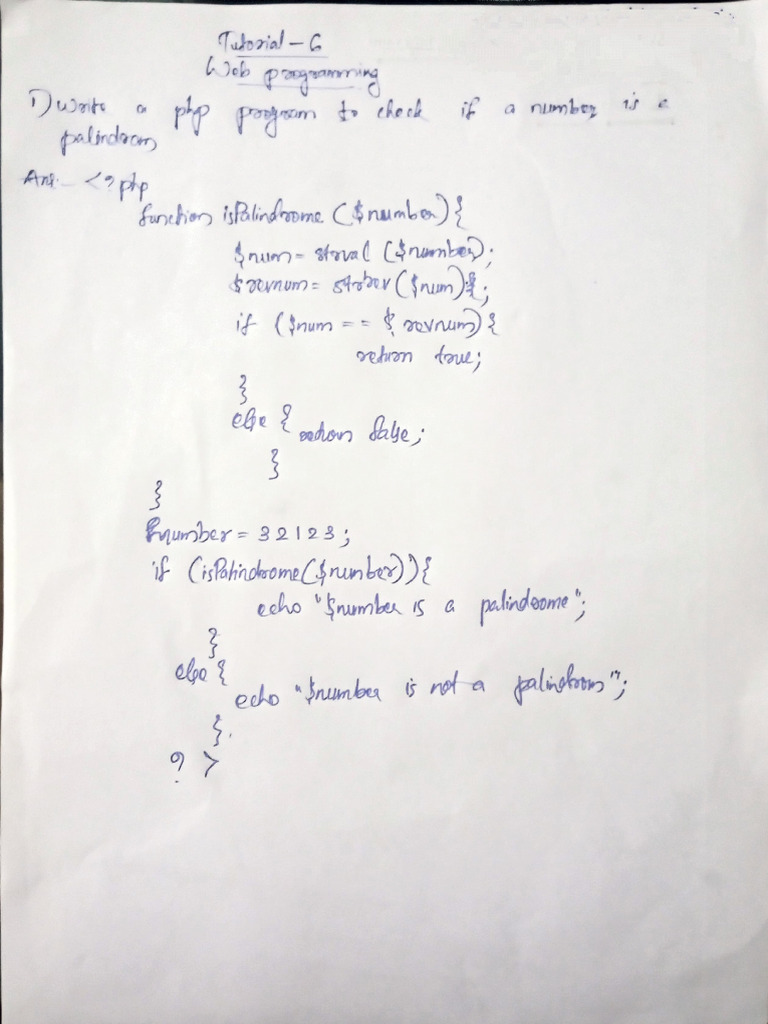 Tutorial - 6
Web programming
1) Write a php program to check if a number is a
palindrom
Ans:- <?php
function isPalindrome ($number) {
$num = strval ($number);
$revnum = strrev ($num);
if ($num == $revnum) {
return true;
}
else { return false;
}
}
$number = 32123;
if (isPalindrome($number)) {
echo "$number is a palindrome";
}
else {
echo "$number is not a palindrom";
}
?>